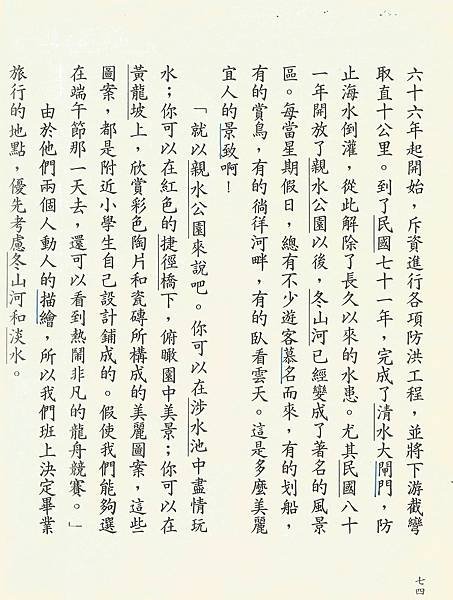 六十六年起開始，斥資進行各項防洪工程，並將下游截彎
取直十公里。到了民國七十一年，完成了清水大閘門，防
止海水倒灌，從此解除了長久以來的水患。尤其民國八十
一年開放了親水公園以後，冬山河已經變成了著名的風景
區。每當星期假日，總有不少遊客慕名而來，有的划船，
有的賞鳥，有的徜徉河畔，有的臥看雲天。這是多麼美麗
宜人的景致啊！
「就以親水公園來說吧。你可以在涉水池中盡情玩
水；你可以在紅色的捷徑橋下，俯瞰園中美景；你可以在
黃龍坡上，欣賞彩色陶片和瓷磚所構成的美麗圖案，這些
圖案，都是附近小學生自己設計鋪成的。假使我們能夠選
在端午節那一天去，還可以看到熱鬧非凡的龍舟競賽。」
由於他們兩個人動人的描繪，所以我們班上決定畢業
旅行的地點，優先考慮冬山河和淡水。
七四